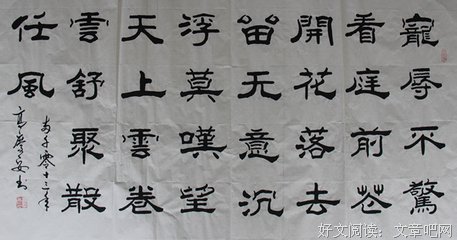 寵辱不驚
看庭前芲
開花落去
留无意沉
浮莫嘆望
天上雲卷
雲舒聚散
任風
零十二年
好文阅读:文章吧网